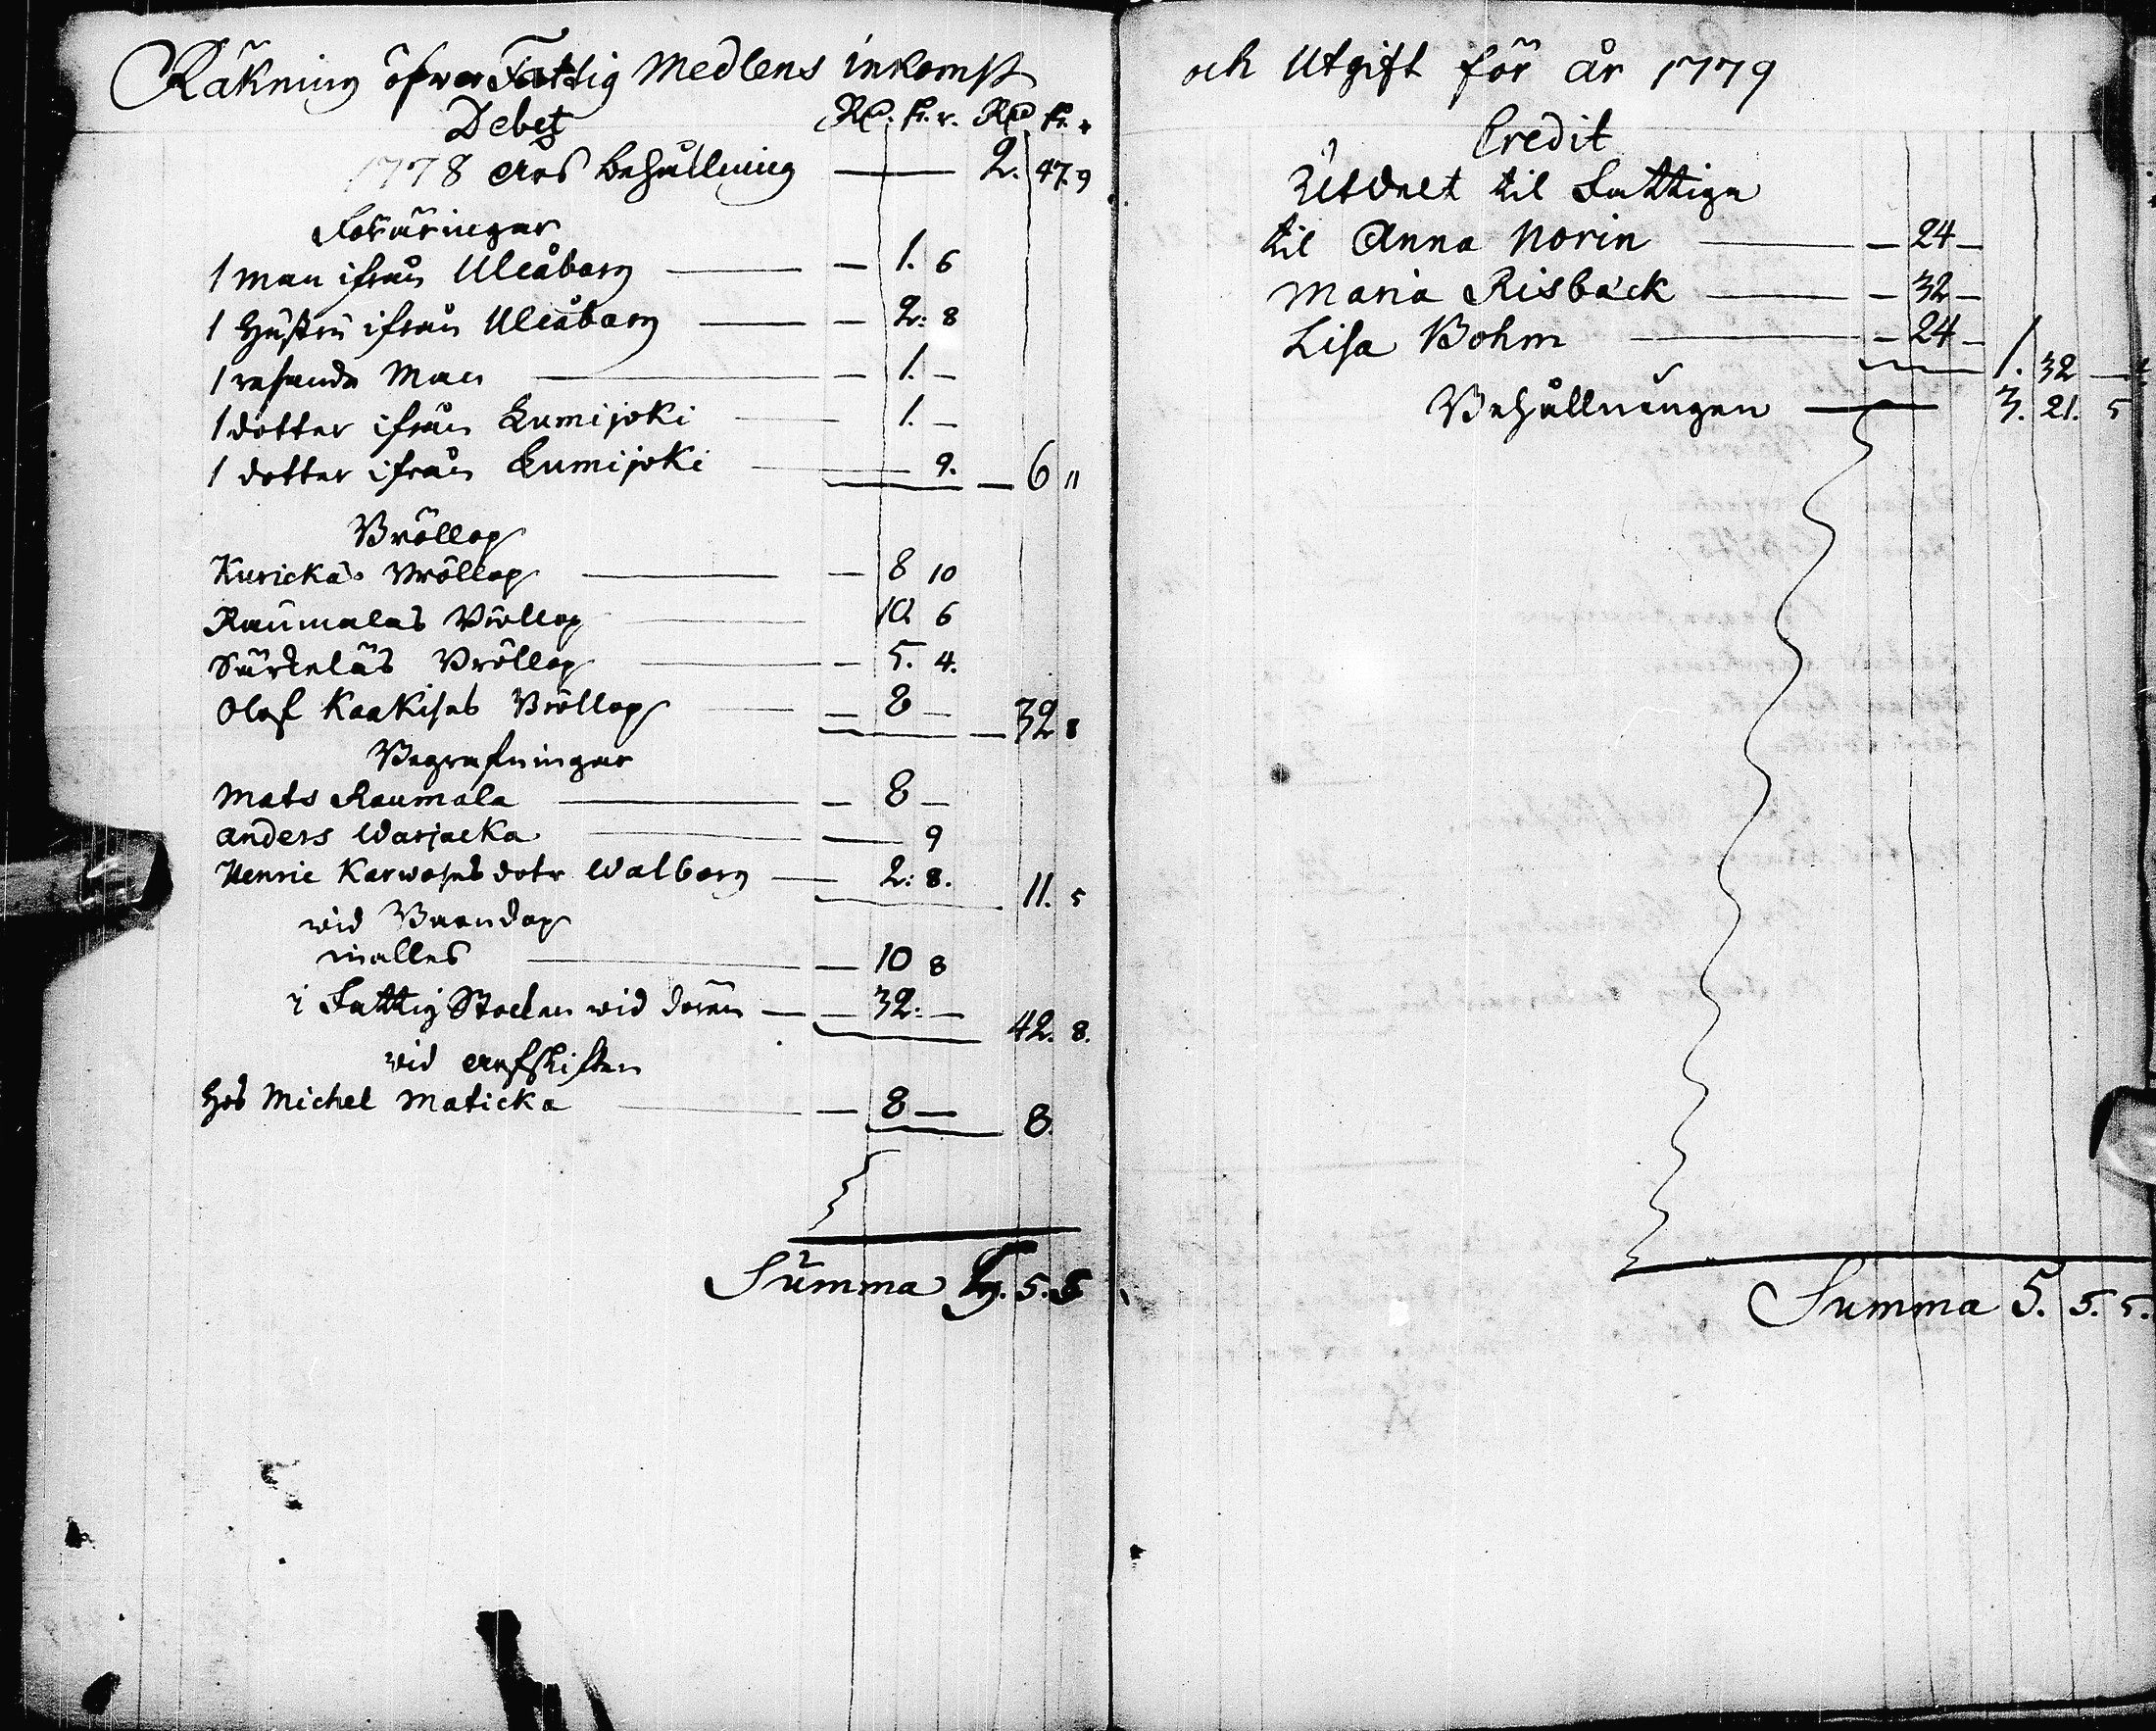 Räkning öfwer Fattig Medlens inkomst
Debet Rd. sk. r. Rd sk. r
1778 års behållning — 2. 47. 9
Föräringar
1 man ifrån Uleåborg — 1. 6
1 hustru ifrån Uleåborg — 2: 8
1 resande Man — 1. —
1 dotter ifrån Lumijoki — 1. —
1 dotter ifrån Lumijoki — 9. — 6 11
Bröllop
Kurickas Bröllop — 8 10
Raumalas Bröllop 10 6
Särkeläs Bröllop — 5. 4.
Olof Kaakises Bröllop — 8 — 32 8
Begrafningar
Mats Raumala — 8 —
Anders Warjacka — 9
Henric Karwoses dotr Walborg — 2: 8. 11. 5
wid Barndop
inalles — 10 8
i Fattig Stocken wid dören — 32. — 42. 8.
wid arfskiften
hos Michel Maticka — 8 — 8.
Summa 5. 5. 5
och Utgift för år 1779
Credit
Utdelt til Fattige
til Anna Norin — 24 —
Maria Risback — 32 —
Lisa Bohm — 24 — 1. 32 —
Behållningen — 3. 21. 5
Summa 5. 5. 5.